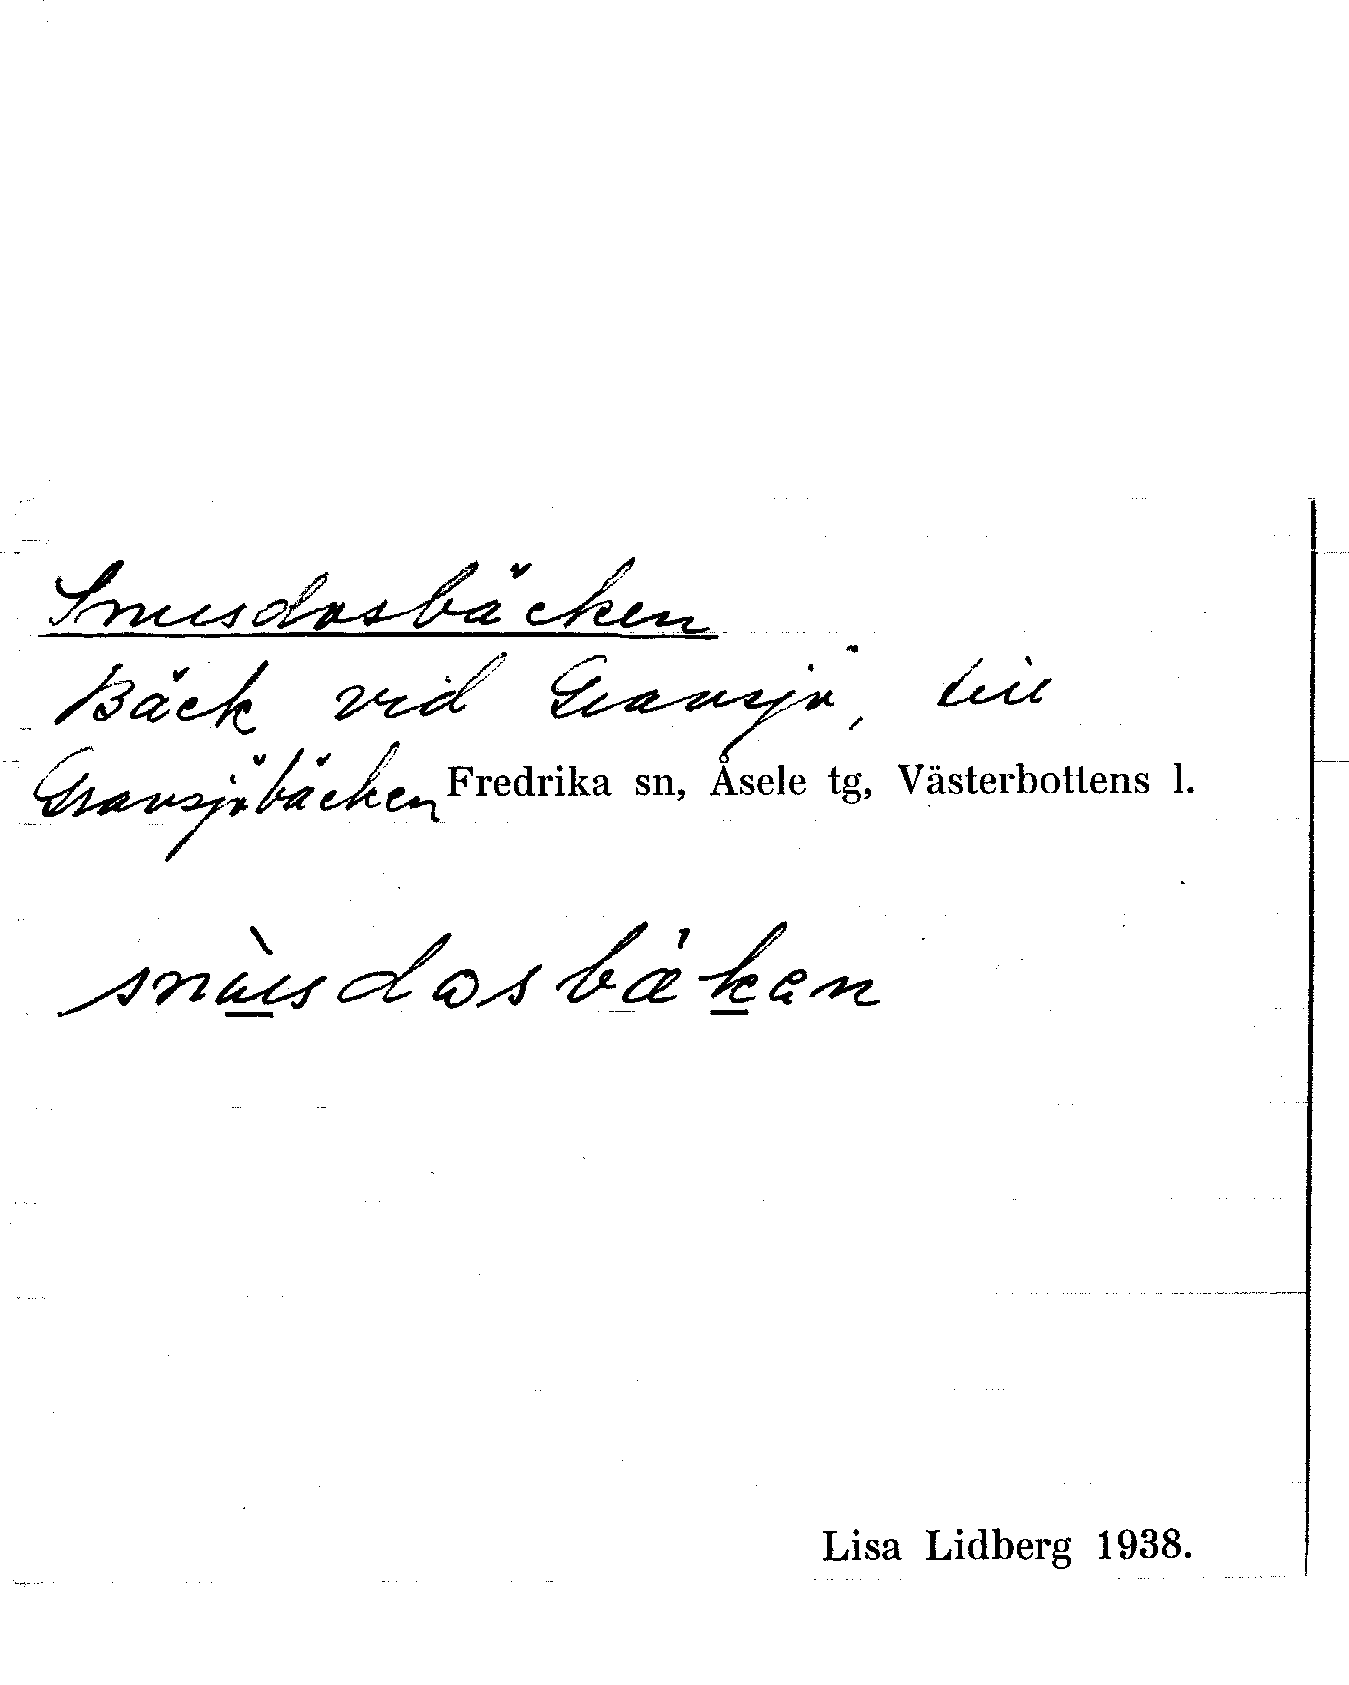 Snusdosbäcken
Bäck vid Gransjö, till
Gransjöbäcken Fredrika sn, Åsele tg, Västerbottens l.
snùsdωsbǽkən
Lisa Lidberg 1938.